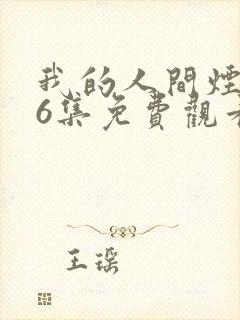 我的人間煙
6集免費觀看
王琛